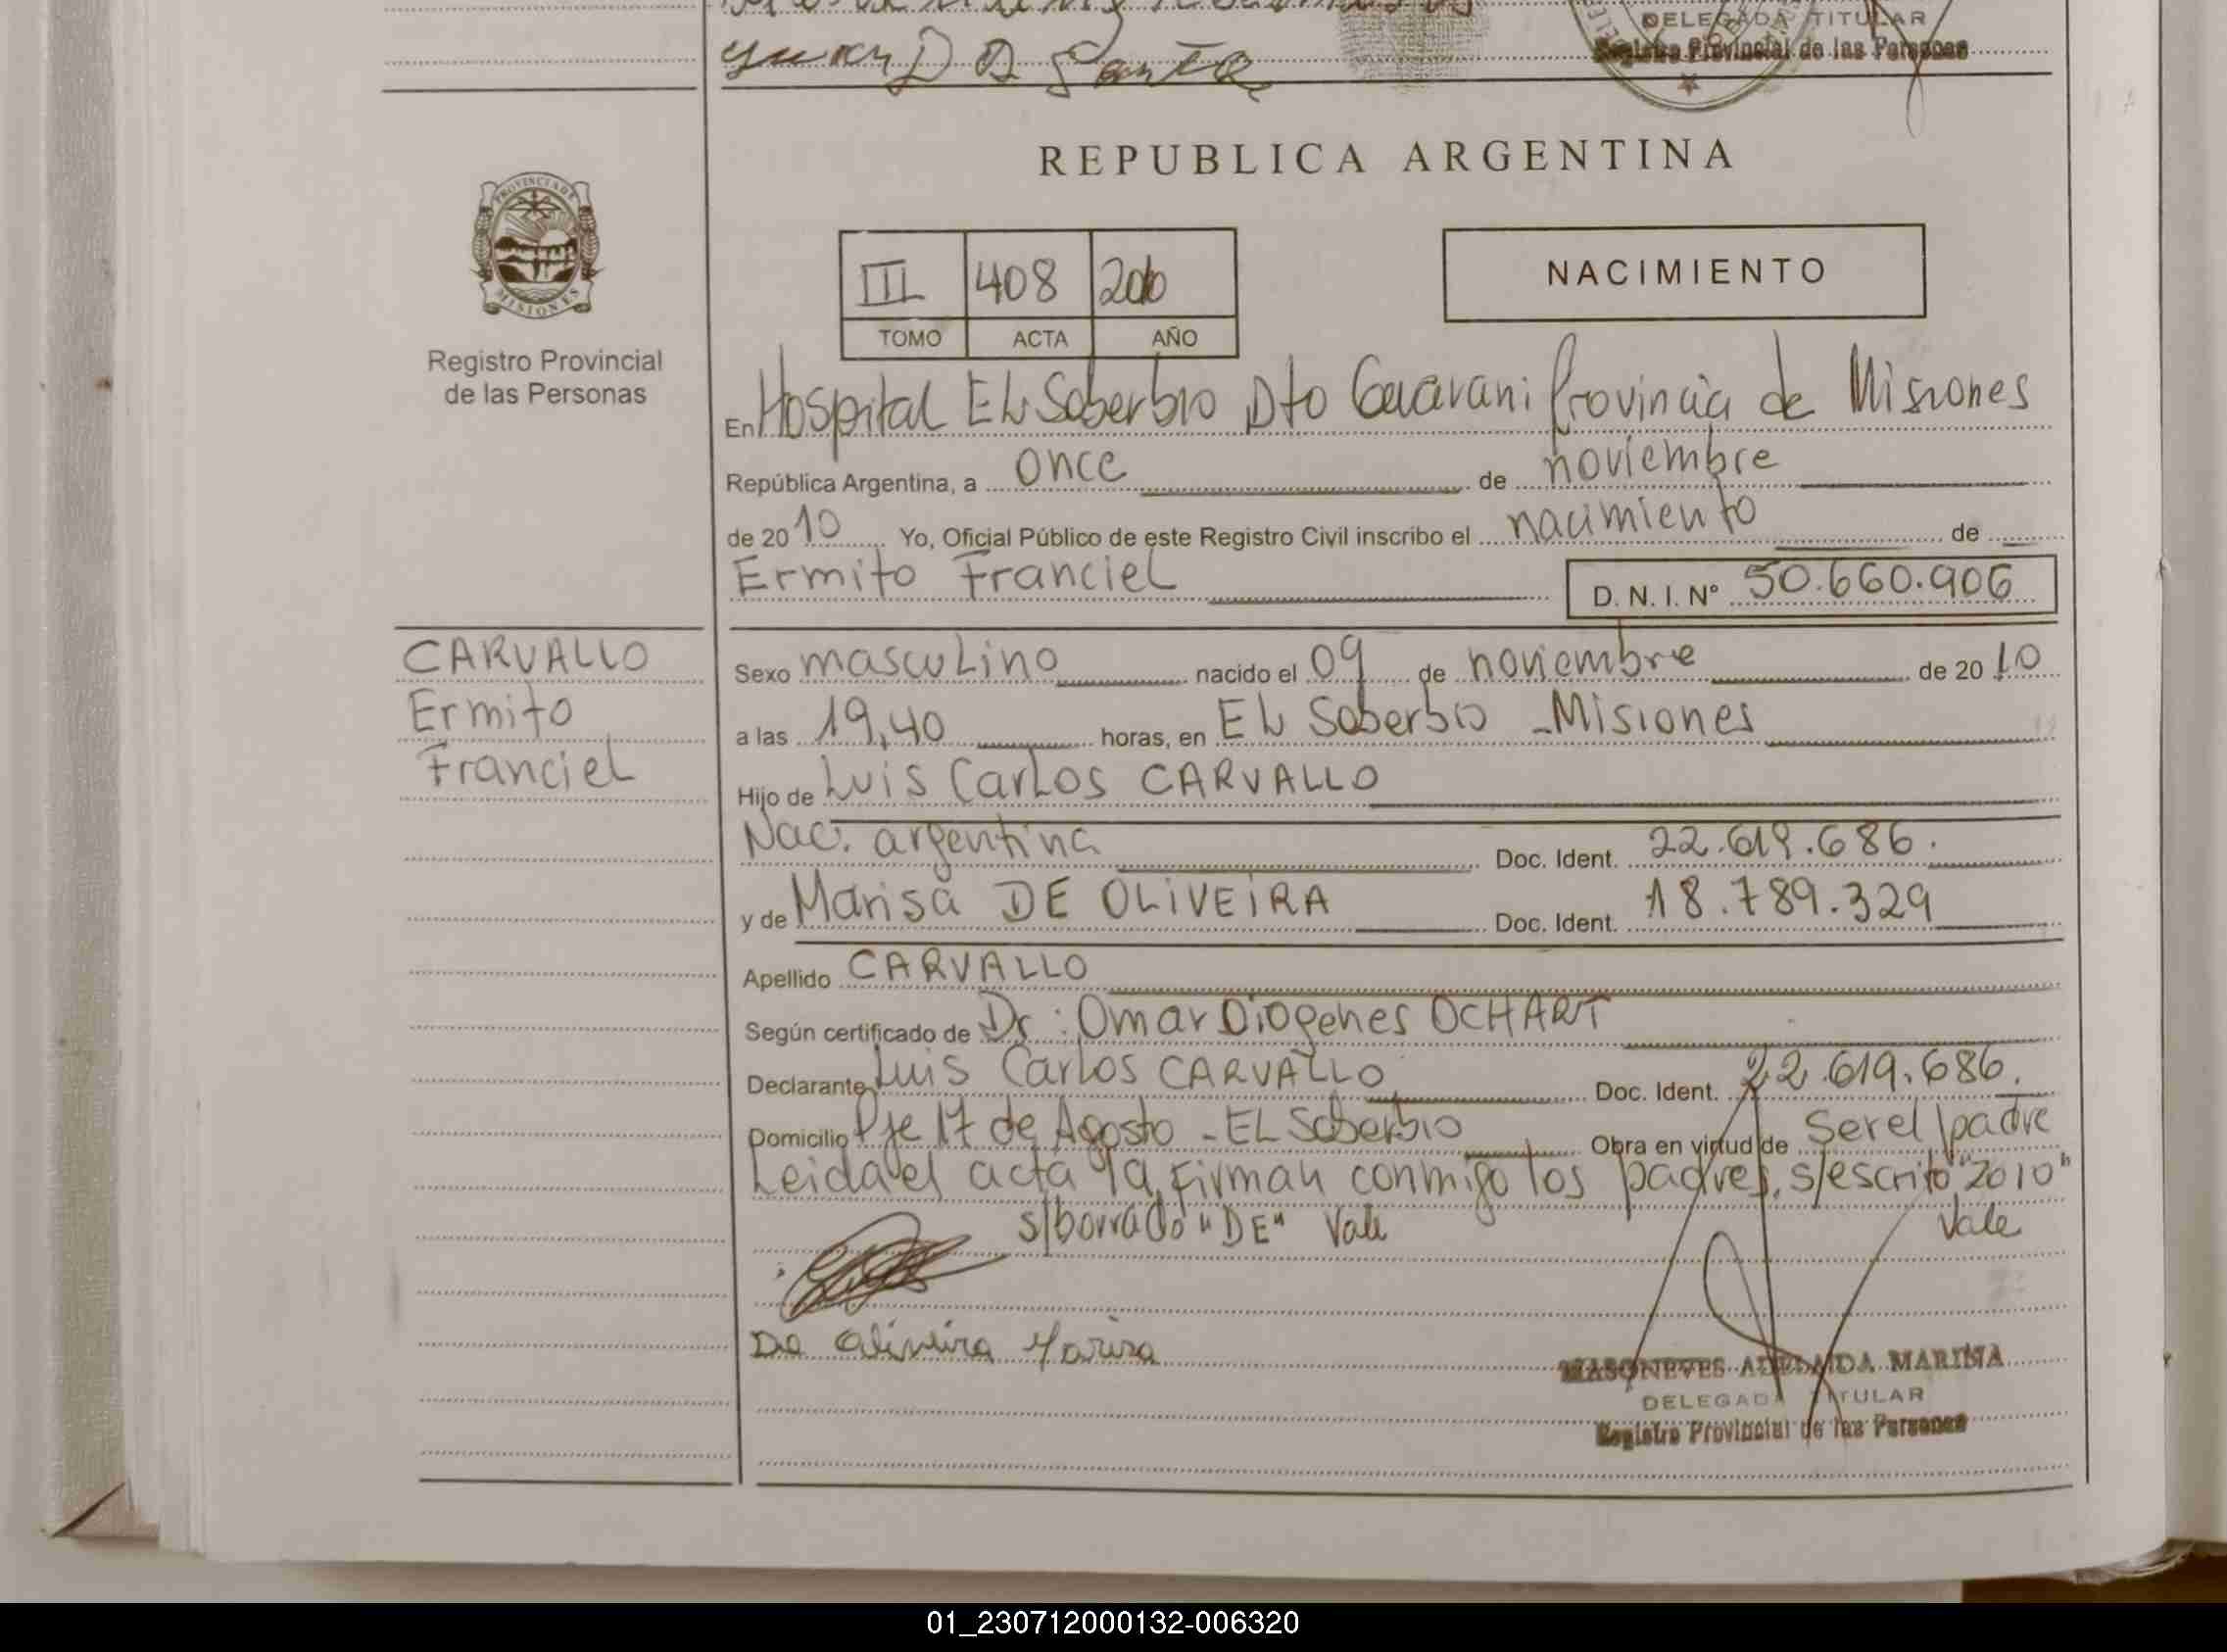 DELEGADA TITULAR
Registro Provincial de las Personas
REPUBLICA ARGENTINA
PROVINCIA DE
MISIONES
III 408 2010
TOMO ACTA AÑO
NACIMIENTO
Registro Provincial
de las Personas
En Hospital EL Soberbio Dto Guarani Provincia de Misiones
República Argentina, a once de noviembre
de 2010 Yo, Oficial Público de este Registro Civil inscribo el nacimiento de
Ermito Franciel D. N. I. Nº 50.660.906
CARVALLO
Ermito
Franciel
Sexo mascuLino nacido el 09 de noviembre de 2010
a las 19,40 horas, en EL Soberbio - Misiones
Hijo de Luis CarLos CARVALLO
Nac. argentina Doc. Ident. 22.619.686.
y de Marisa DE OLiVEiRA Doc. Ident. 18.789.329
Apellido CARVALLO
Según certificado de Dr: Omar Diogenes OCHART
Declarante Luis Carlos CARVALLO Doc. Ident. 22.619.686.
Domicilio Pje 17 de Agosto - EL Soberbio Obra en virtud de Ser el padre
Leida el acta la firman conmigo los padres, s/escrito "2010"
s/borrado "DE" Vale Vale
De Oliveira Marisa
MASONEVES ADELAIDA MARINA
DELEGADA TITULAR
Registro Provincial de las Personas
01_230712000132-006320